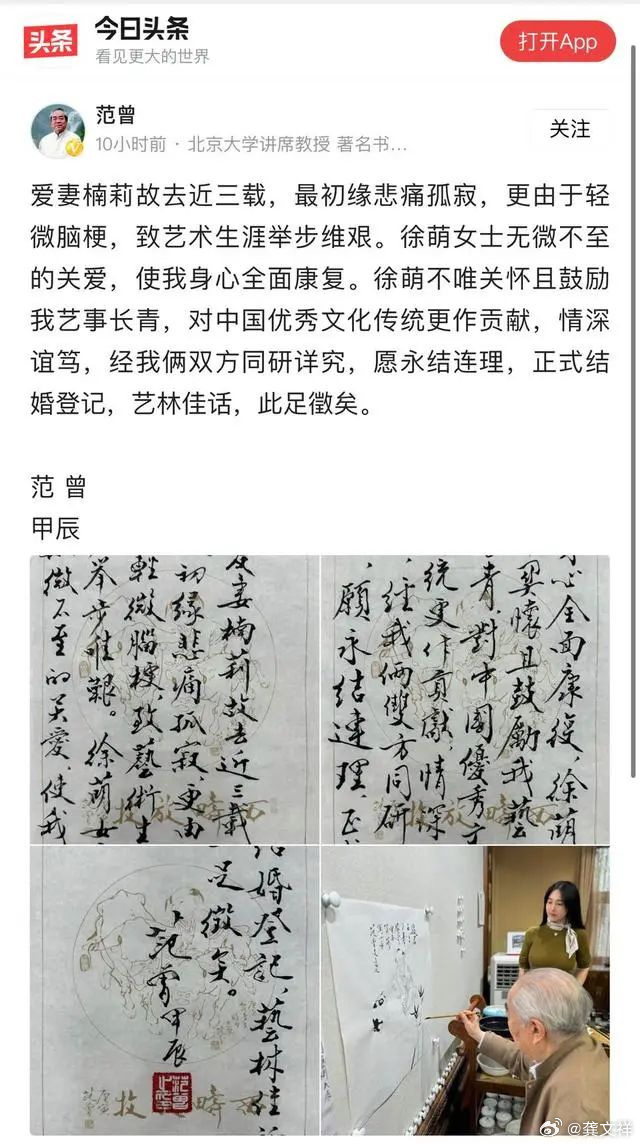 头条
今日头条
看见更大的世界
打开App
范曾
10小时前 · 北京大学讲席教授 著名书...
关注
爱妻楠莉故去近三载，最初缘悲痛孤寂，更由于轻
微脑梗，致艺术生涯举步维艰。徐萌女士无微不至
的关爱，使我身心全面康复。徐萌不唯关怀且鼓励
我艺事长青，对中国优秀文化传统更作贡献，情深
谊笃，经我俩双方同研详究，愿永结连理，正式结
婚登记，艺林佳话，此足徵矣。
范 曾
甲辰
妻楠莉故去近三载
初缘悲痛孤寂，更由
轻微脑梗，致艺术生
举步维艰。徐萌女
微不至的关爱，使我
心全面康复，徐萌
关怀且鼓励我艺
青，对中国优秀文
统更作贡献，情深
经我俩双方同研
，愿永结连理，正
婚登记，艺林佳话
足徵矣。
范曾甲辰
@龚文祥